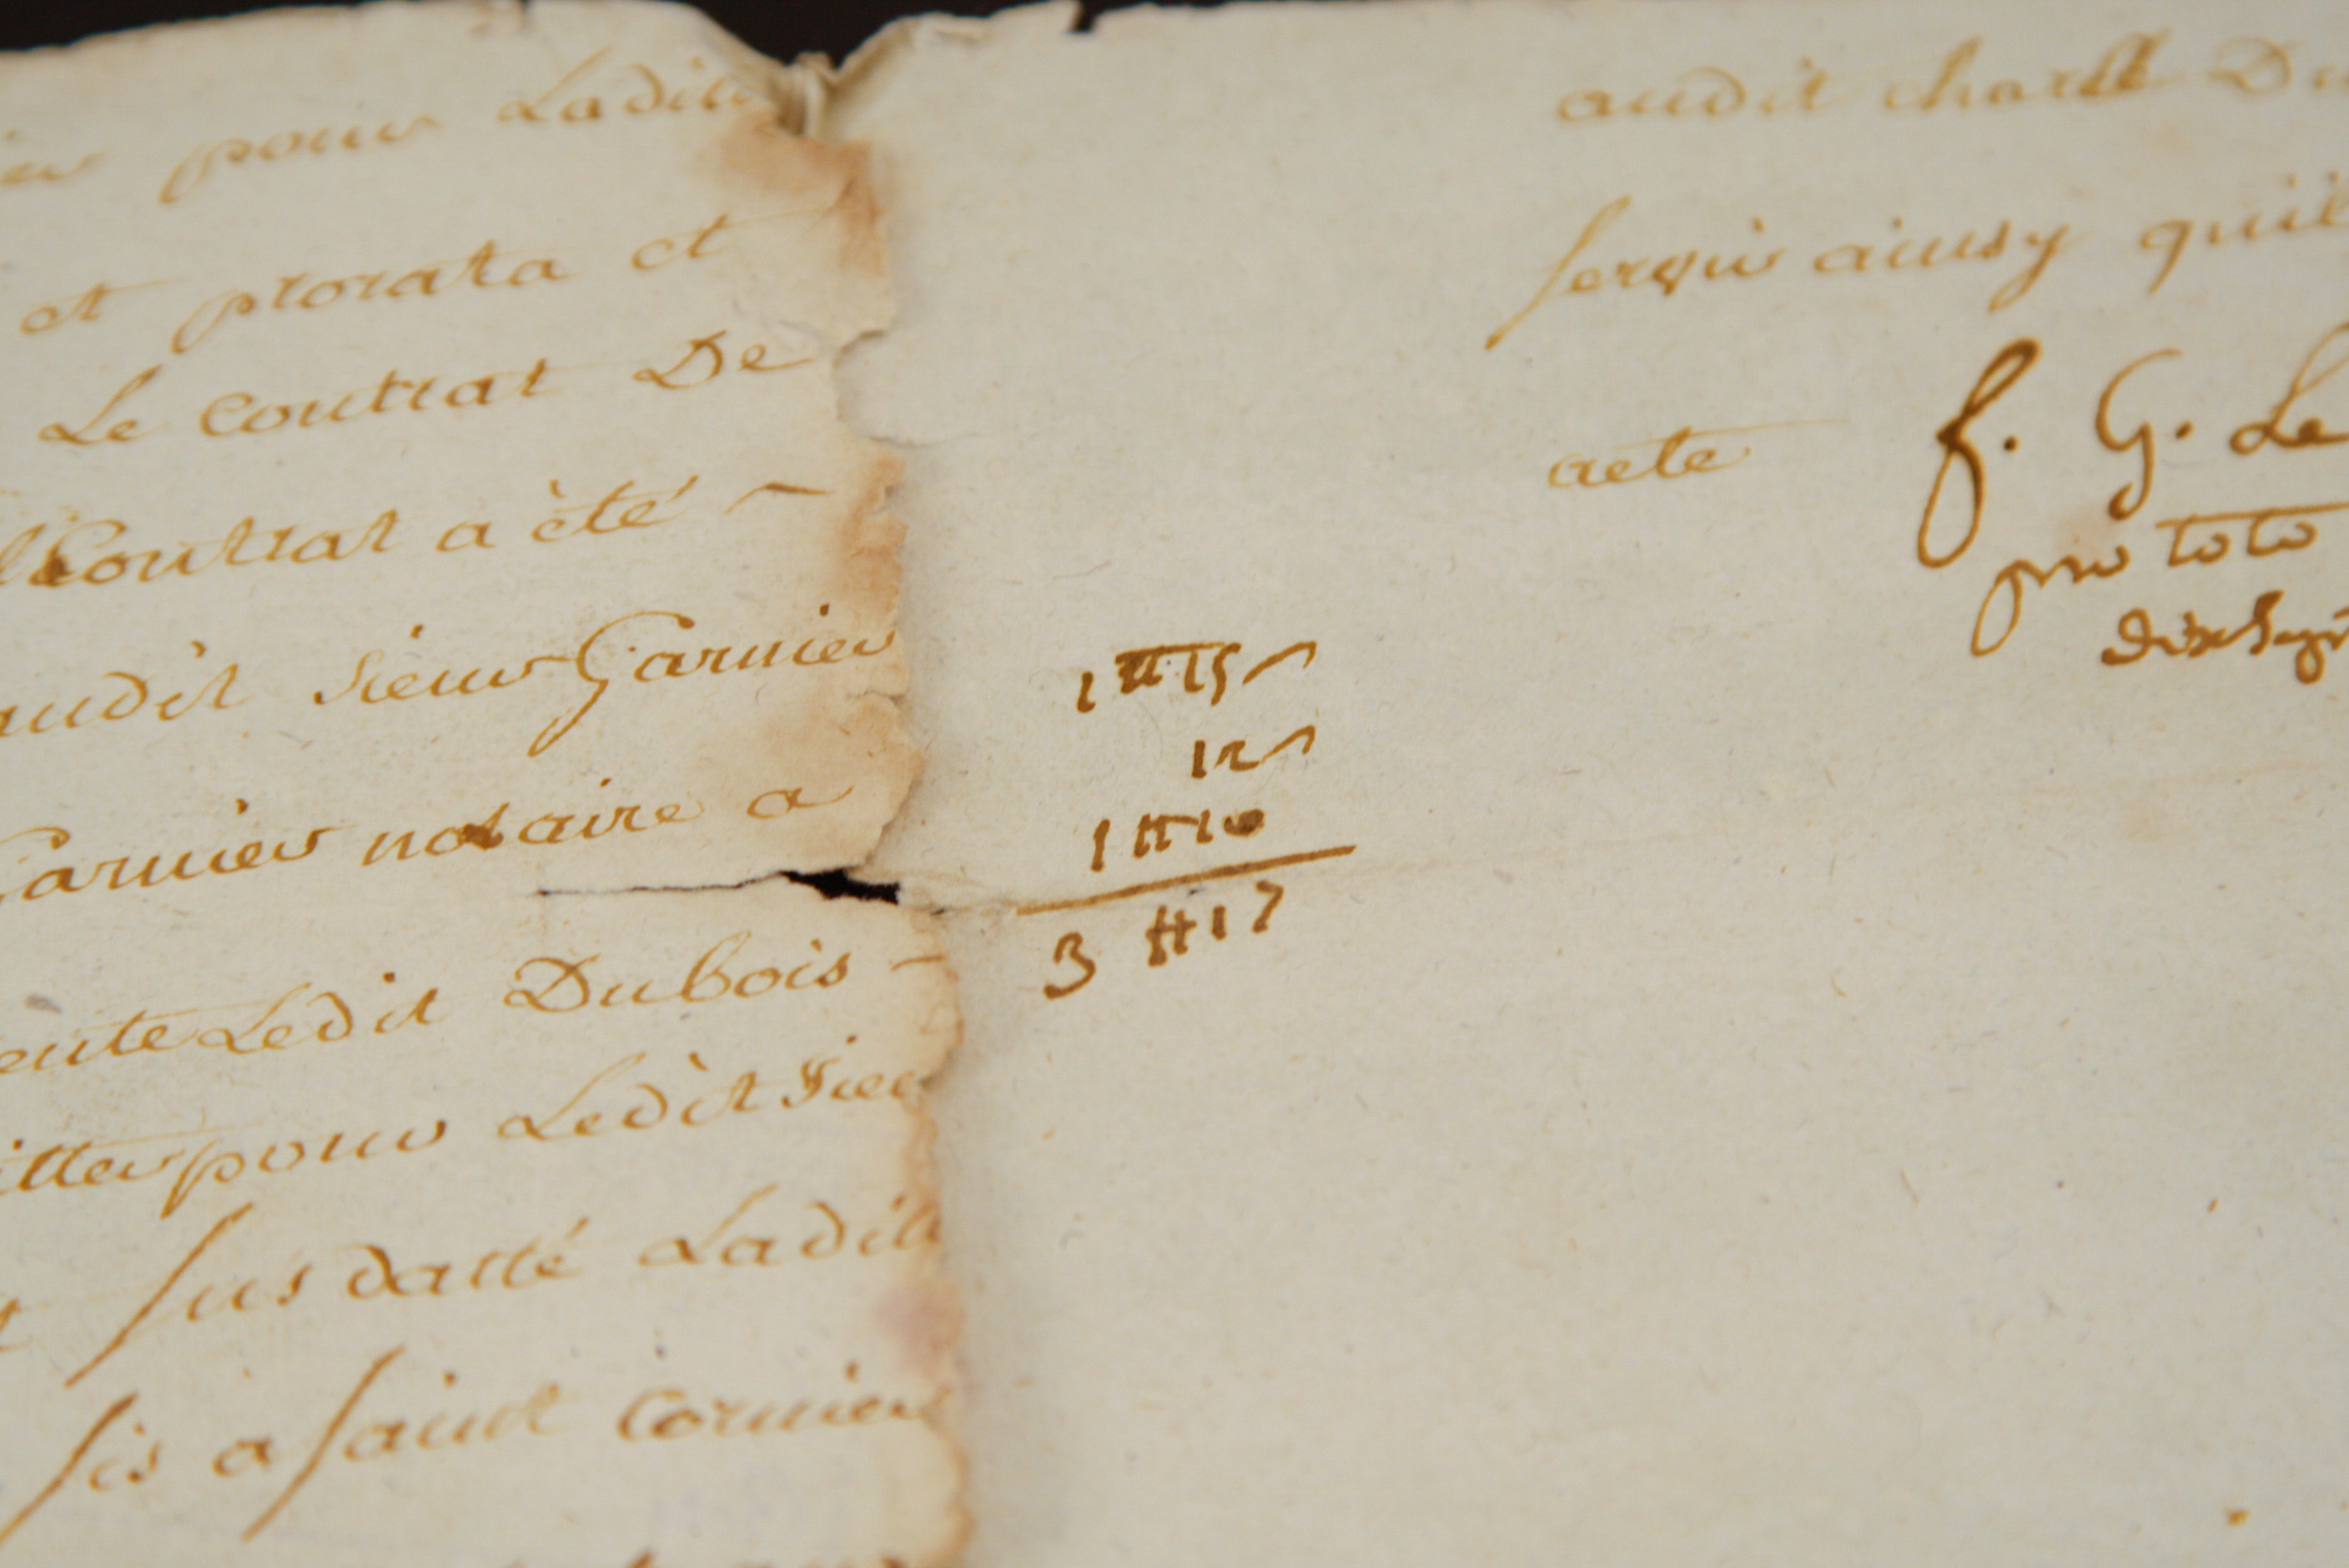 pour Ladite
et prorata et
Le contrat De
Contrat a èté ~
audit sieur Garnier
Garnier notaire a
Ledit Dubois -
pour Ledit Sieu
sus datté Ladite
sis a saint Cornier
audit Du
servir ainsy quil
acte f. G. Le
pro toto
1 ₶ 15 s
12 s
1 ₶ 10
3 ₶ 17